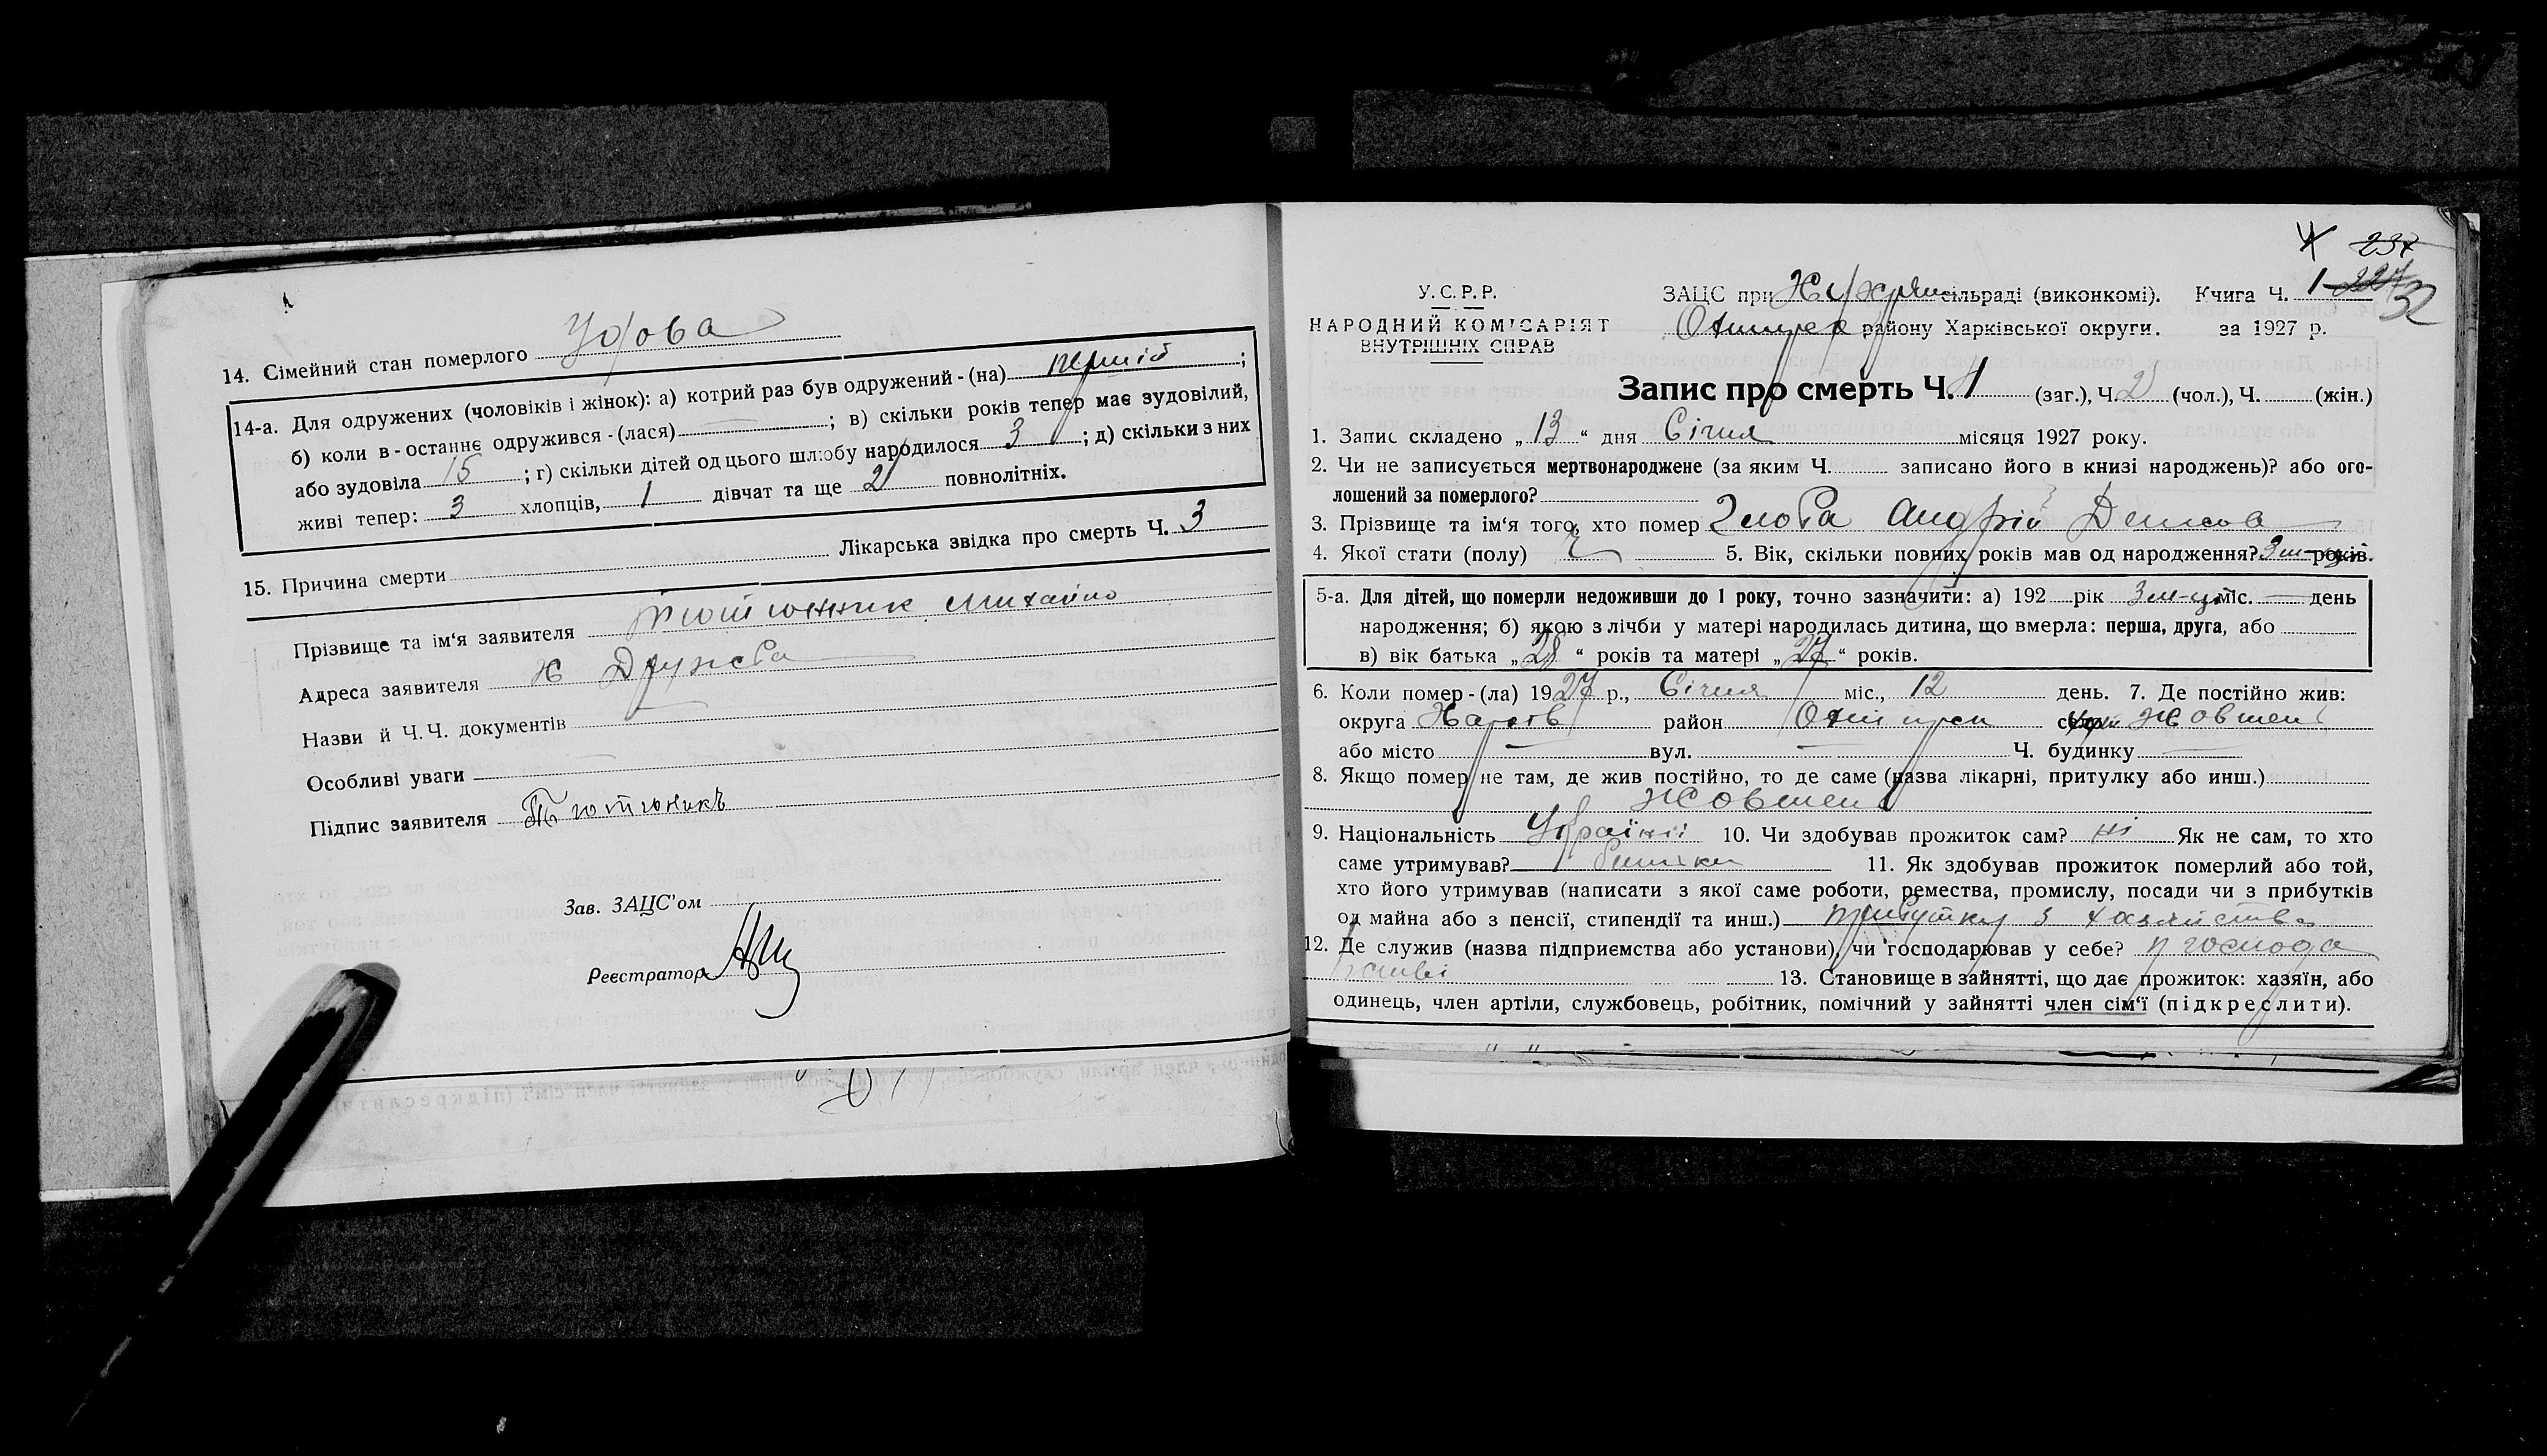 14. Сімейний стан померлого Удова
14-а. Для одружених (чоловіків і жінок): а) котрий раз був одружений-(на) первій;
б) коли в-останнє одружився-(лася) —; в) скільки років тепер має зудовілий,
або зудовіла 15; г) скільки дітей од цього шлюбу народилося 3; д) скільки з них
живі тепер: 3 хлопців, 1 дівчат та ще 2 повнолітніх.
15. Причина смерти Лікарська звідка про смерть Ч. 3
Прізвище та ім'я заявителя Тютюнник Михайло
Адреса заявителя Х Дружба
Назви й Ч.Ч. документів
Особливі уваги
Підпис заявителя Тютюникъ
Зав. ЗАЦС'ом
Реєстратор
237
У.С.Р.Р.
НАРОДНИЙ КОМІСАРІЯТ
ВНУТРІШНІХ СПРАВ
ЗАЦС при сільраді (виконкомі). Книга Ч. 1 227 32
району Харківської округи. за 1927 р.
Запис про смерть Ч. 1 (заг.), Ч. 2 (чол.), Ч. (жін.)
1. Запис складено „13“ дня Січня місяця 1927 року.
2. Чи не записується мертвонароджене (за яким Ч. записано його в книзі народжень)? або ого-
лошений за померлого?
3. Прізвище та ім'я того, хто помер Андрій
4. Якої стати (полу) ч 5. Вік, скільки повних років мав од народження? 3 м-ц років.
5-а. Для дітей, що померли недоживши до 1 року, точно зазначити: а) 192 рік 3 м-ц міс. — день
народження; б) якою з лічби у матері народилась дитина, що вмерла: перша, друга, або
в) вік батька „28“ років та матері „27“ років.
6. Коли помер-(ла) 1927 р., Січня міс., 12 день. 7. Де постійно жив:
округа Харків район село Жовтень
або місто — вул. — Ч. будинку —
8. Якщо помер не там, де жив постійно, то де саме (назва лікарні, притулку або инш.)
Жовтень
9. Національність Україні 10. Чи здобував прожиток сам? ні Як не сам, то хто
саме утримував? Батьки 11. Як здобував прожиток померлий або той,
хто його утримував (написати з якої саме роботи, ремества, промислу, посади чи з прибутків
од майна або з пенсії, стипендії та инш.) прибутки з хазяйства
12. Де служив (назва підприємства або установи), чи господарював у себе? господа
рстві 13. Становище в зайнятті, що дає прожиток: хазяїн, або
одинець, член артіли, службовець, робітник, помічний у зайнятті член сім'ї (підкреслити).